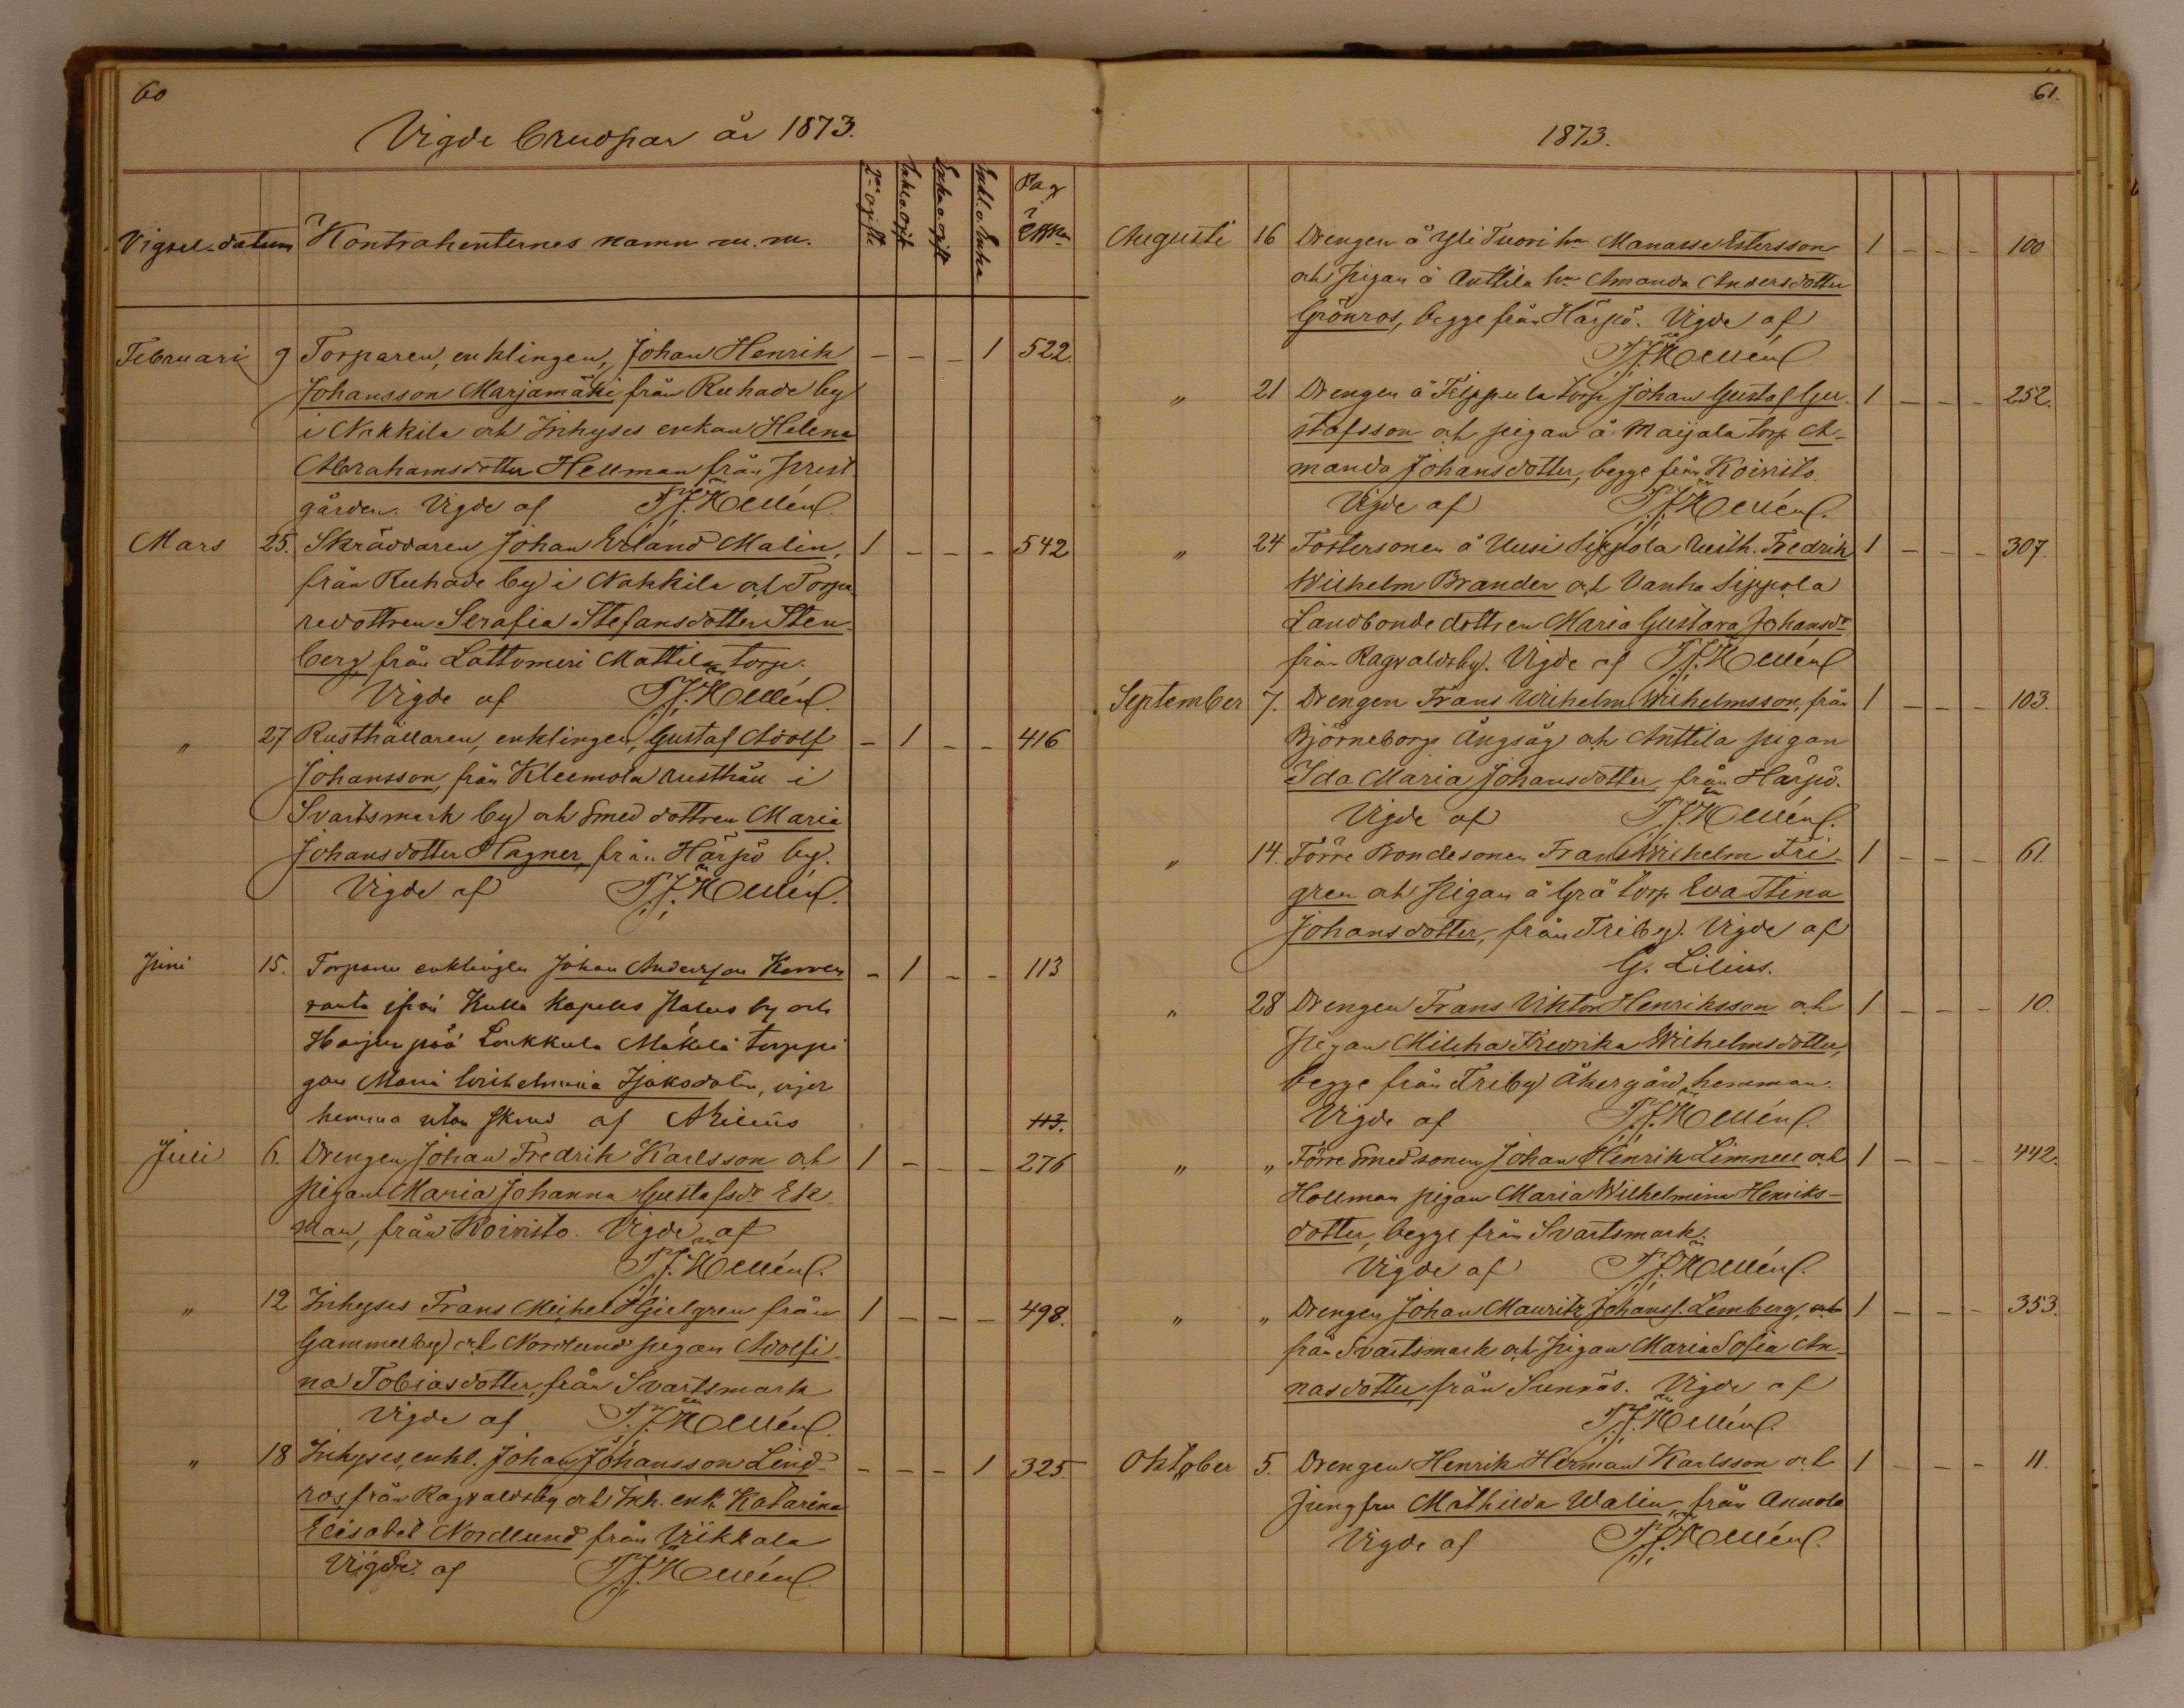 60
Vigde Brudpar år 1873.
Vigsel-datum Kontrahenternes namn m. m. 2ne ogifte Enkl. o. ogift Enka o. ogift Enkl. o. Enka Pag. i
Februari 9 Torparen, enklingen, Johan Henrik – – – 1 522.
Johansson Marjamäki från Ruhade by
i Nakkila och Inhyses enkan Helena
Abrahamsdotter Hellman från Prest-
gården. Vigde af T. J. Hellén.
Mars 25. Skräddaren Johan Erland Malin, 1 – – – 542
från Ruhade by i Nakkila och Torpa-
redottren Serafia Stefansdotter Sten-
berg, från Lattomeri Mattila torp.
Vigde af T. J. Hellén.
" 27 Rusthållaren, enklingen, Gustaf Adolf – 1 – – 416
Johansson, från Kleemola rusthåll i
Svartsmark by och Smed dottren Maria
Johansdotter Hagner, från Härpö by.
Vigde af T. J. Hellén.
Juni 15. Torparen enklingen Johan Andersson Korven – 1 – – 113
ranta ifrån Kulla Kapells Palus by och
Harjunpää Loukkula Mäkelä torppi
gan Maria Wilhelmina Isaksdotter, vigr
hemma utan skrud af
113.
Juli 6. Drengen Johan Fredrik Karlsson och 1 – – – 276
Pigan Maria Johanna Gustafsdr Ek
man, från Koivisto. Vigde af
T. J. Hellén.
" 12 Inhyses Frans Mikel Hjelgren från 1 – – – 498.
Gammelby och Nordlund pigan Adolfi-
na Tobiasdotter, från Svartsmark
Vigde af T. J. Hellén.
" 18 Inhyses, enkl. Johan Johansson Lind- – – – 1 325.
ros, från Ragvaldsby och Inh. enk. Katarina
Elisabet Nordlund från Viikkala
Vigde af T. J. Hellén.
61.
1873.
Augusti 16 Drengen å Yli Tuori hn Manasse Estersson 1 – – – 100
och pigan å Anttila hn Amanda Andersdotter
Grönros, begge från Härpö. Vigde af
T. J. Hellén.
" 21 Drengen å Filppula torp Johan Gustaf Gu- 1 – – – 252.
stafsson och pigan å Maijala torp A-
manda Johansdotter, begge från Koivisto.
Vigde af T. J. Hellén.
" 24 Fostersonen å Uusi Sippola rusth. Fredrik 1 – – – 307.
Wilhelm Brander och Vanha Sippola
Landbonde dottren Maria Gustava Johansdr
från Ragvaldsby. Vigde af T. J. Hellén
September 7. Drengen Frans Wilhelm Wilhelmsson, från 1 – – – 103.
Björneborgs Ångsåg och Anttila pigan
Ida Maria Johansdotter från Härpö.
Vigde af T. J. Hellén.
" 14. Förre Bondesonen Frans Wilhelm Fri- 1 – – – 61.
gren och Pigan å Grå torp Eva Stina
Johansdotter, från Friby. Vigde af
G. Lilius.
" 28 Drengen Frans Viktor Henriksson och 1 – – – 10.
Pigan Milkha Fredrika Wilhelmsdotter,
begge från Friby Åkergård hemman.
Vigde af T. J. Hellén.
" " Förre Smedsonen Johan Henrik Limnell och 1 – – – 442.
Hollman pigan Maria Wilhelmina Henriks-
dotter, begge från Svartsmark.
Vigde af T. J. Hellén.
" " Drengen Johan Mauritz Johanss. Lemberg, och 1 – – – 353.
från Svartsmark och Pigan Maria Sofia An-
nasdotter, från Sunnäs. Vigde af
T. J. Hellén.
Oktober 5. Drengen Henrik Herman Karlsson och 1 – – – 11.
jungfru Mathilda Walin, från Annola
Vigde af T. J. Hellén.